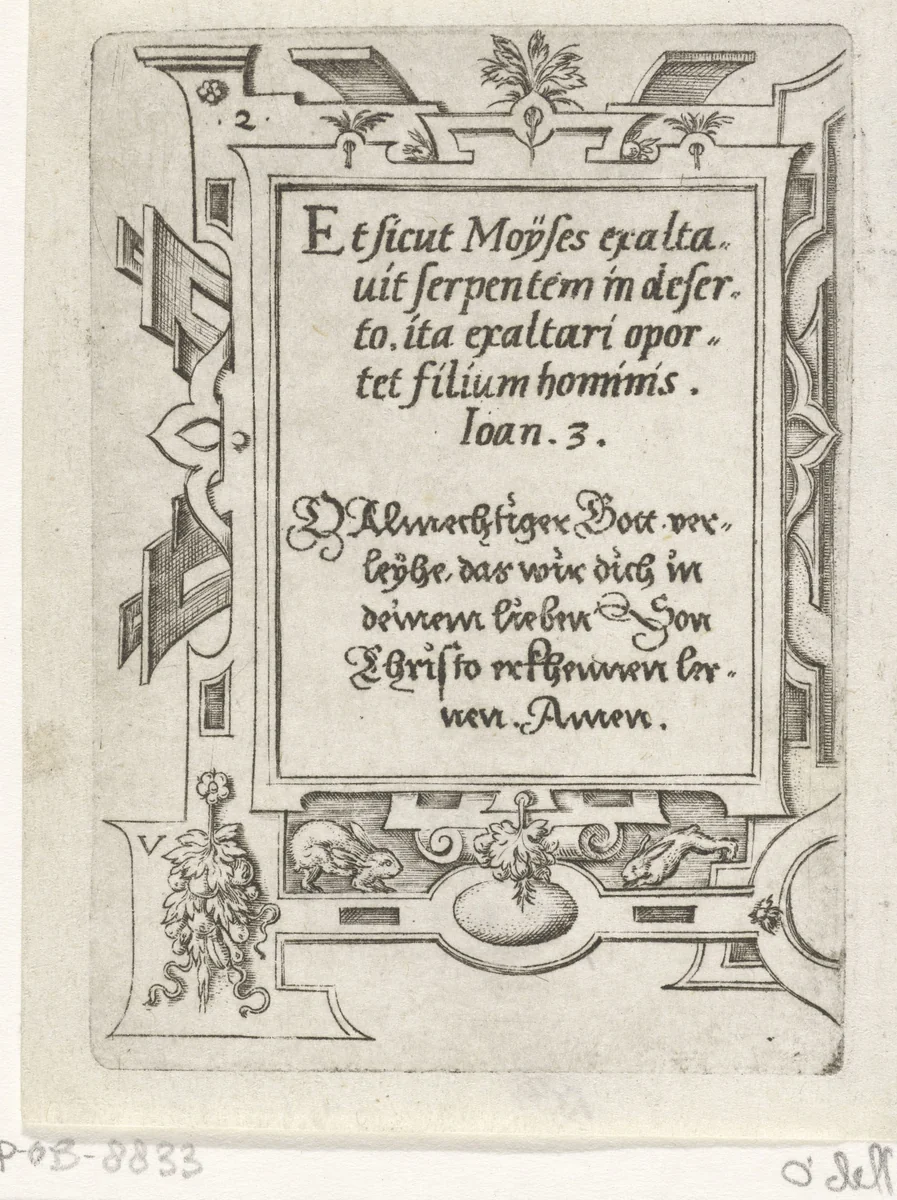 . 2 .
Et sicut Moÿses exalta„
uit serpentem in deser„
to. ita exaltari opor„
tet filium hominis .
Ioan. 3 .
O Almechtiger Gott ver„
leÿhe, das wir dich in
deinem lieben Son
Christo erkhennen ler„
nen . Amen .
V
P-OB-8833
o'dell